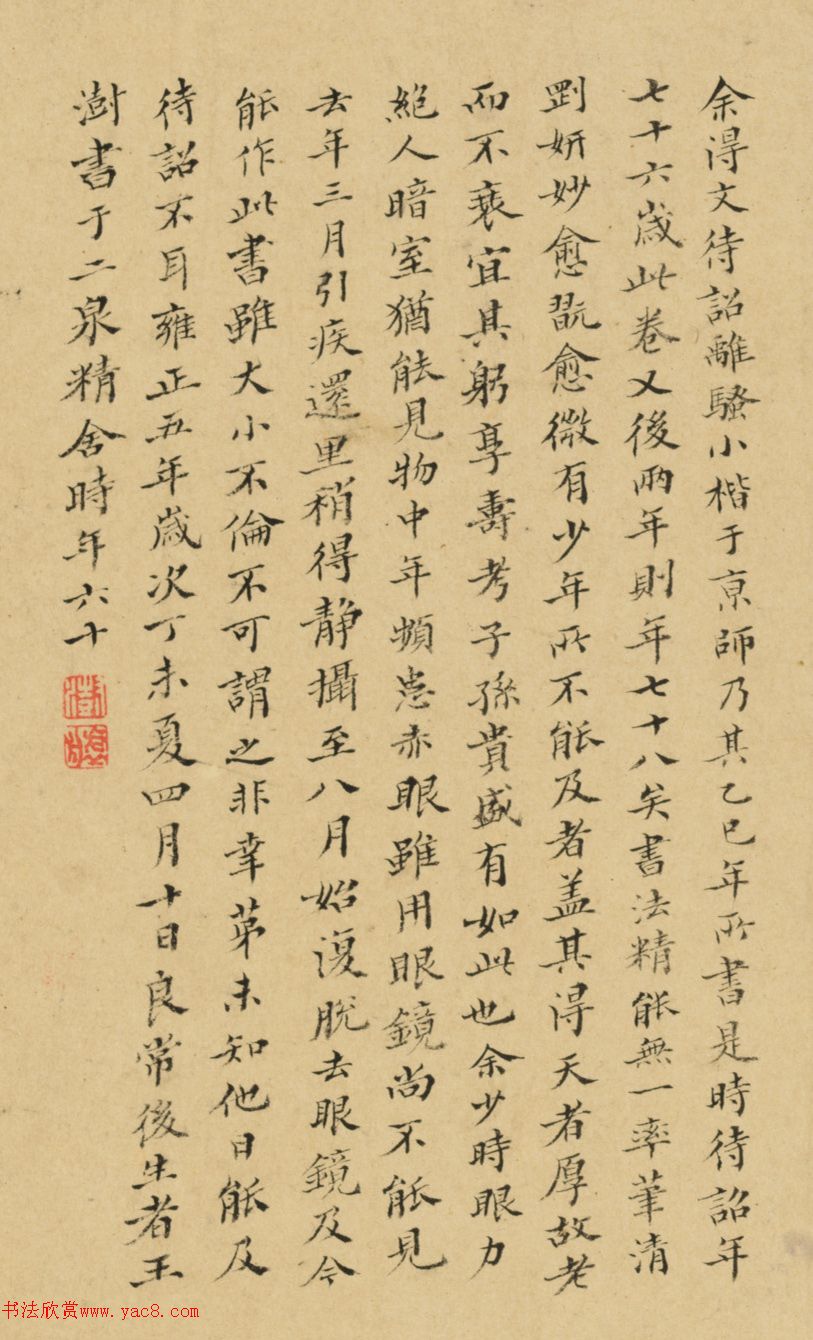 余得文待詔離騷小楷于京師乃其乙巳年所書是時待詔年
七十六歲此卷又後兩年則年七十八矣書法精能無一率筆清
劉妍妙愈翫愈微有少年所不能及者盖其得天者厚故老
而不衰宜其躬享壽考子孫貴盛有如此也余少時眼力
絕人暗室猶能見物中年頻患赤眼雖用眼鏡尚不能見
去年三月引疾還里稍得静攝至八月始復脫去眼鏡及今
能作此書雖大小不倫不可謂之非幸苐未知他日能及
待詔不耳雍正五年歲次丁未夏四月十日良常後生者王
澍書于二泉精舍時年六十
书法欣赏www.yac8.com